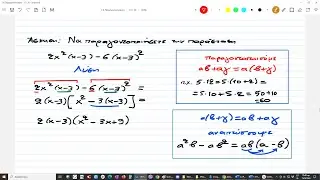 Άσκηση: Να παραγοντοποιήσετε την παράσταση
2x²(x-3)-6(x-3)²
Λύση
2x²(x-3)-6(x-3)² =
2(x-3)[x²-3(x-3)] =
2(x-3)(x²-3x+9)
παραγοντοποιήσω
αβ+αγ=α(β+γ)
π.χ. 5·12=5·(10+2)=
=5·10+5·2=50+10
=60
α(β+γ)=αβ+αγ
αναπτύσσω
α²β-αβ²=αβ(α-β)